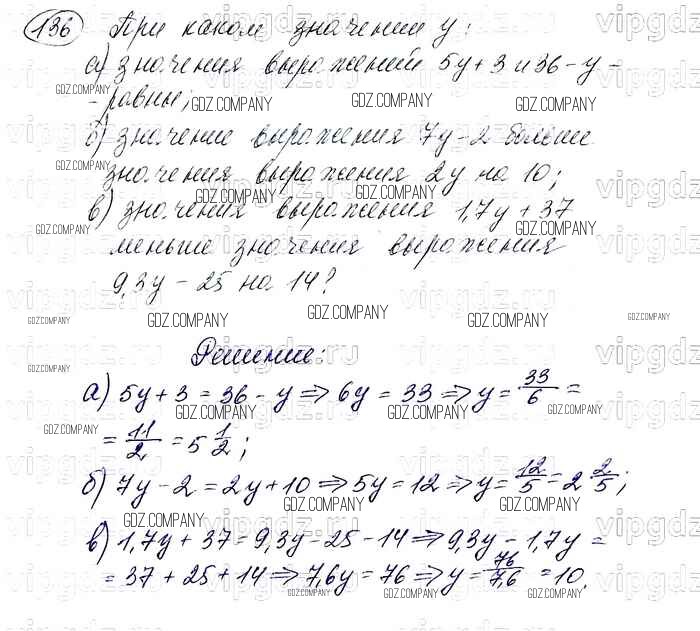 136 При каком значении y:
а) значения выражений 5y + 3 и 36 - y -
- равны;
б) значение выражения 7y - 2 больше
значения выражения 2y на 10;
в) значения выражения 1,7y + 37
меньше значения выражения
9,3y - 25 на 14?
Решение:
а) 5y + 3 = 36 - y ⇒ 6y = 33 ⇒ y = 33/6 =
= 11/2 = 5 1/2;
б) 7y - 2 = 2y + 10 ⇒ 5y = 12 ⇒ y = 12/5 = 2 2/5;
в) 1,7y + 37 = 9,3y - 25 - 14 ⇒ 9,3y - 1,7y =
= 37 + 25 + 14 ⇒ 7,6y = 76 ⇒ y = 76/7,6 = 10.
GDZ.COMPANY
vipgdz.ru